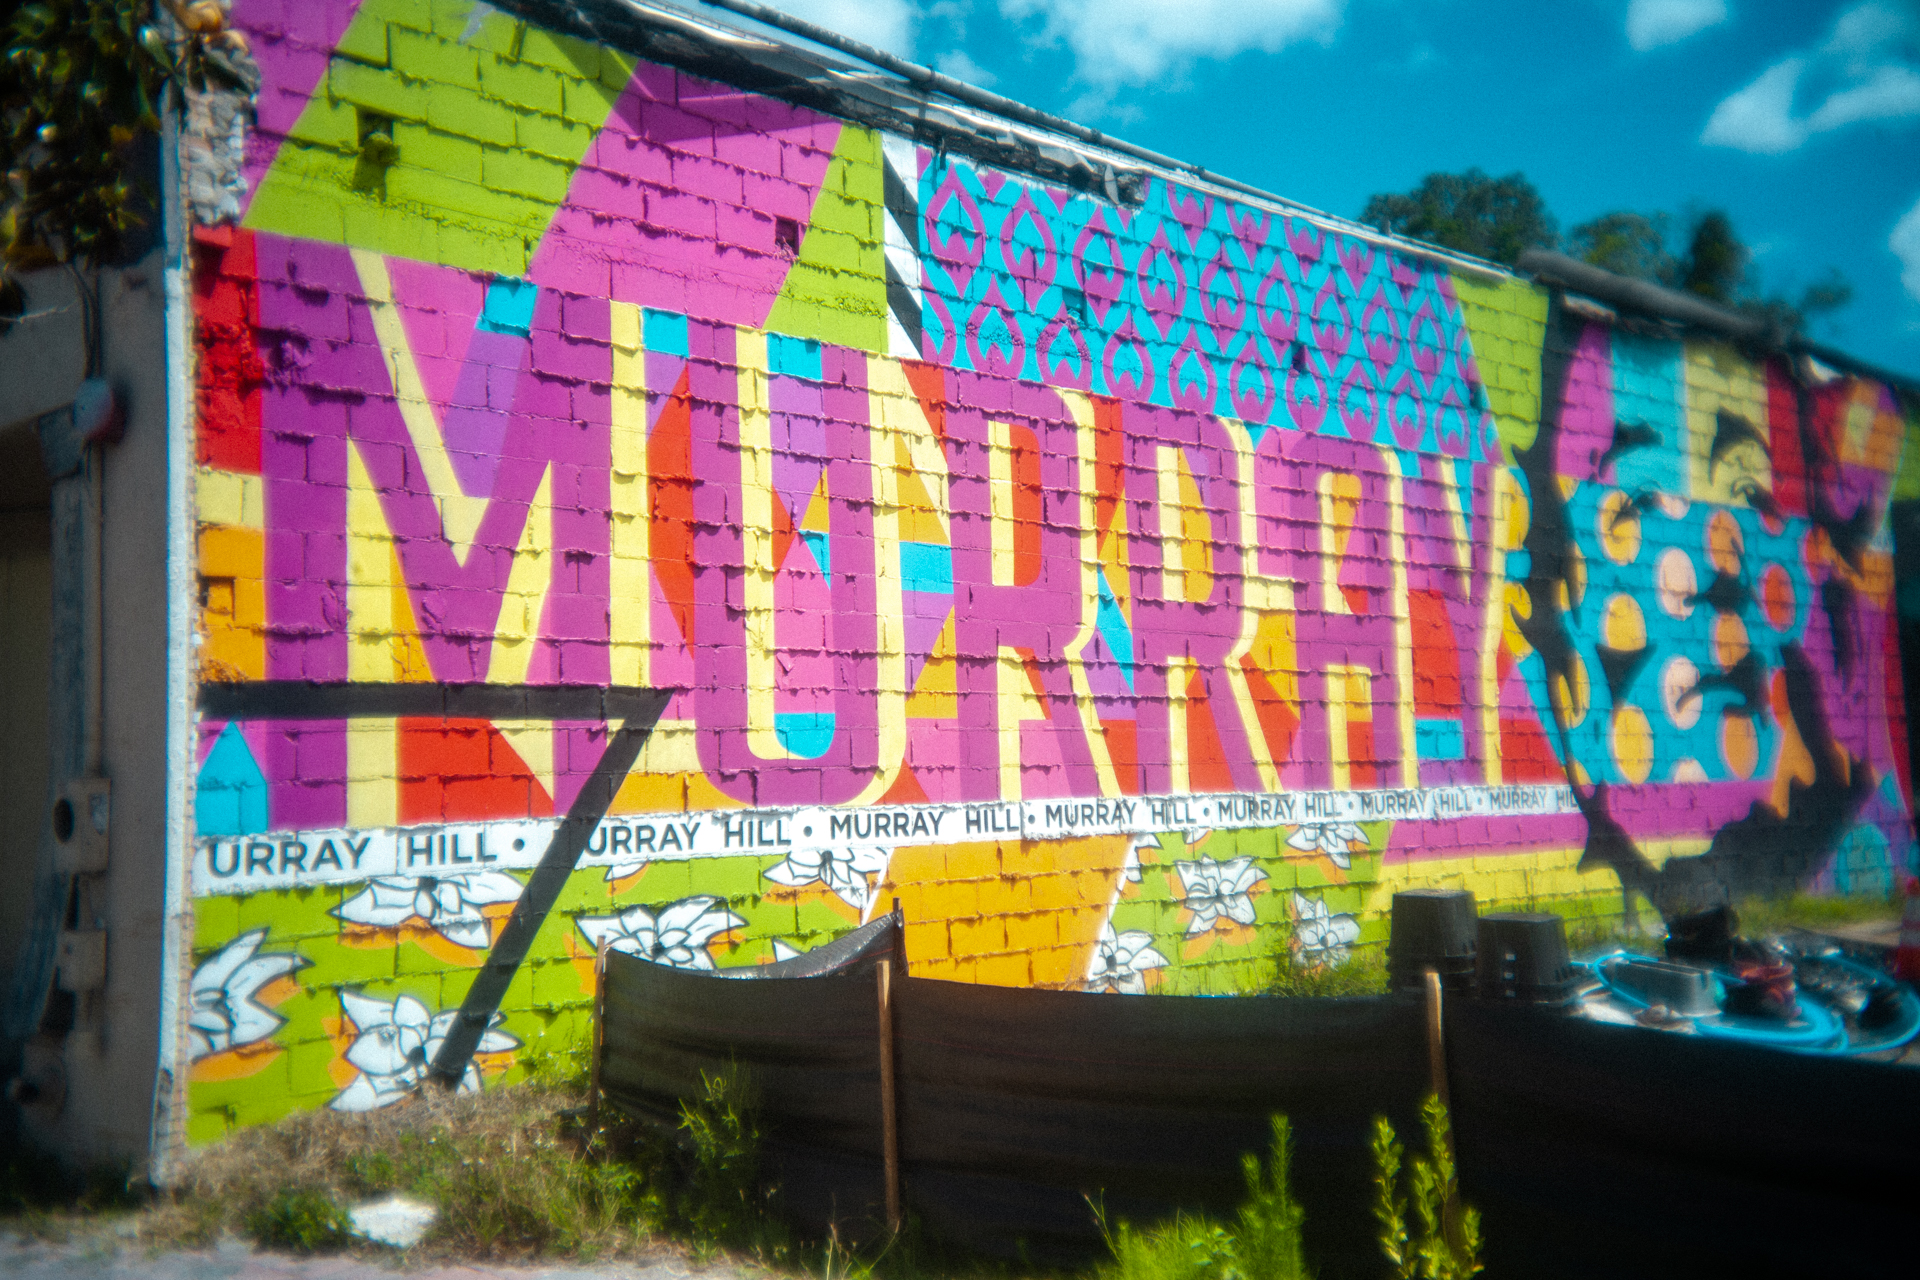 MURRAY
URRAY HILL • URRAY HILL • MURRAY HILL • MURRAY HILL • MURRAY HILL • MURRAY HILL • MURRAY HIL